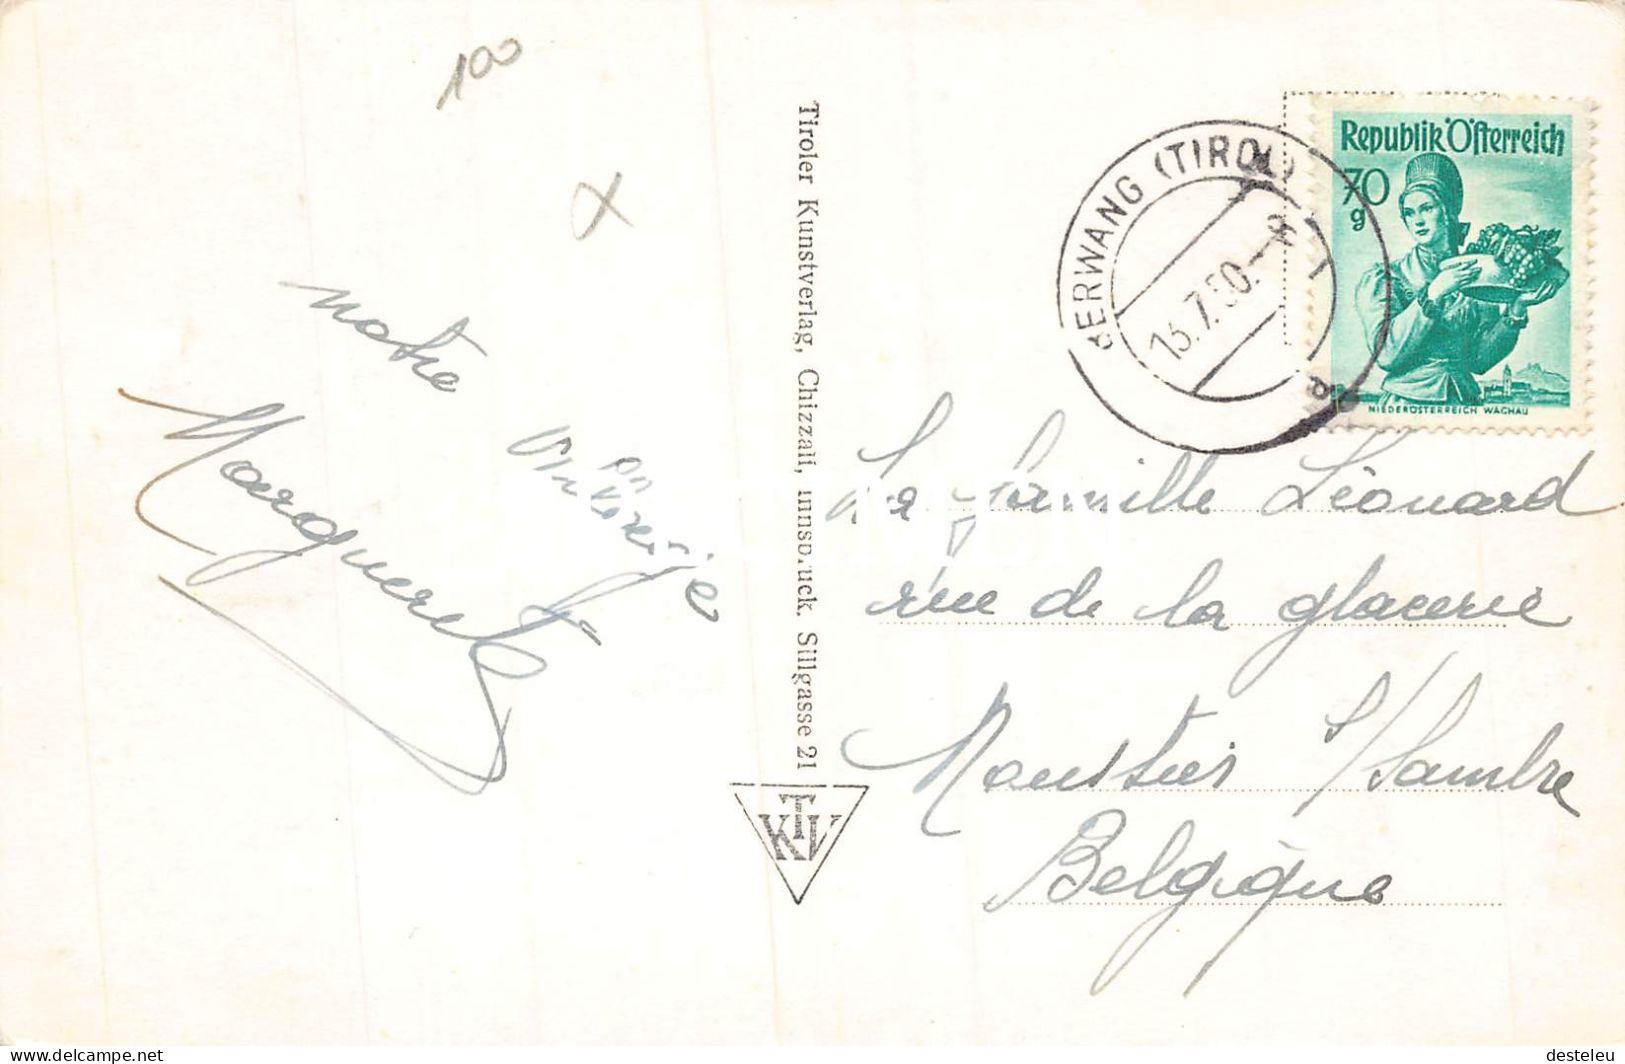 100
X
notre
Marguerite
en
Tiroler Kunstverlag, Chizzali, Innsbruck. Sillgasse 21
TKV
BERWANG (TIROL)
13.7.50.
Republik Österreich
70
g
NIEDERÖSTERREICH WACHAU
La famille Léonard
rue de la glacerie
Moustier s/Sambre
Belgique
www.delcampe.net
desteleu